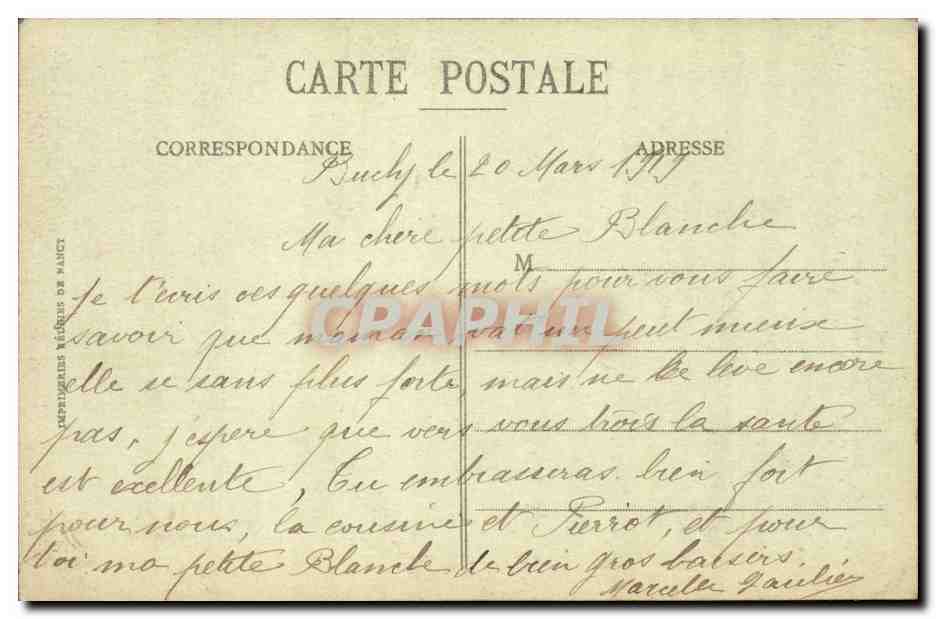 CARTE POSTALE
CORRESPONDANCE
ADRESSE
Buchy le 20 Mars 1919
Ma chere petite Blanche
M
Je t'ecris ces quelques mots pour vous faire
savoir que maman vat un peut mieux
elle se sans plus forte, mais ne se lève encore
pas, j'espere que vers vous trois la santé
est excellente, Tu embrasseras bien fort
pour nous, la cousine et Pierrot, et pour
toi ma petite Blanche de bien gros baisers.
Marcelle Gaulier
IMPRIMERIES RÉUNIES DE NANCY
CPAPHIL